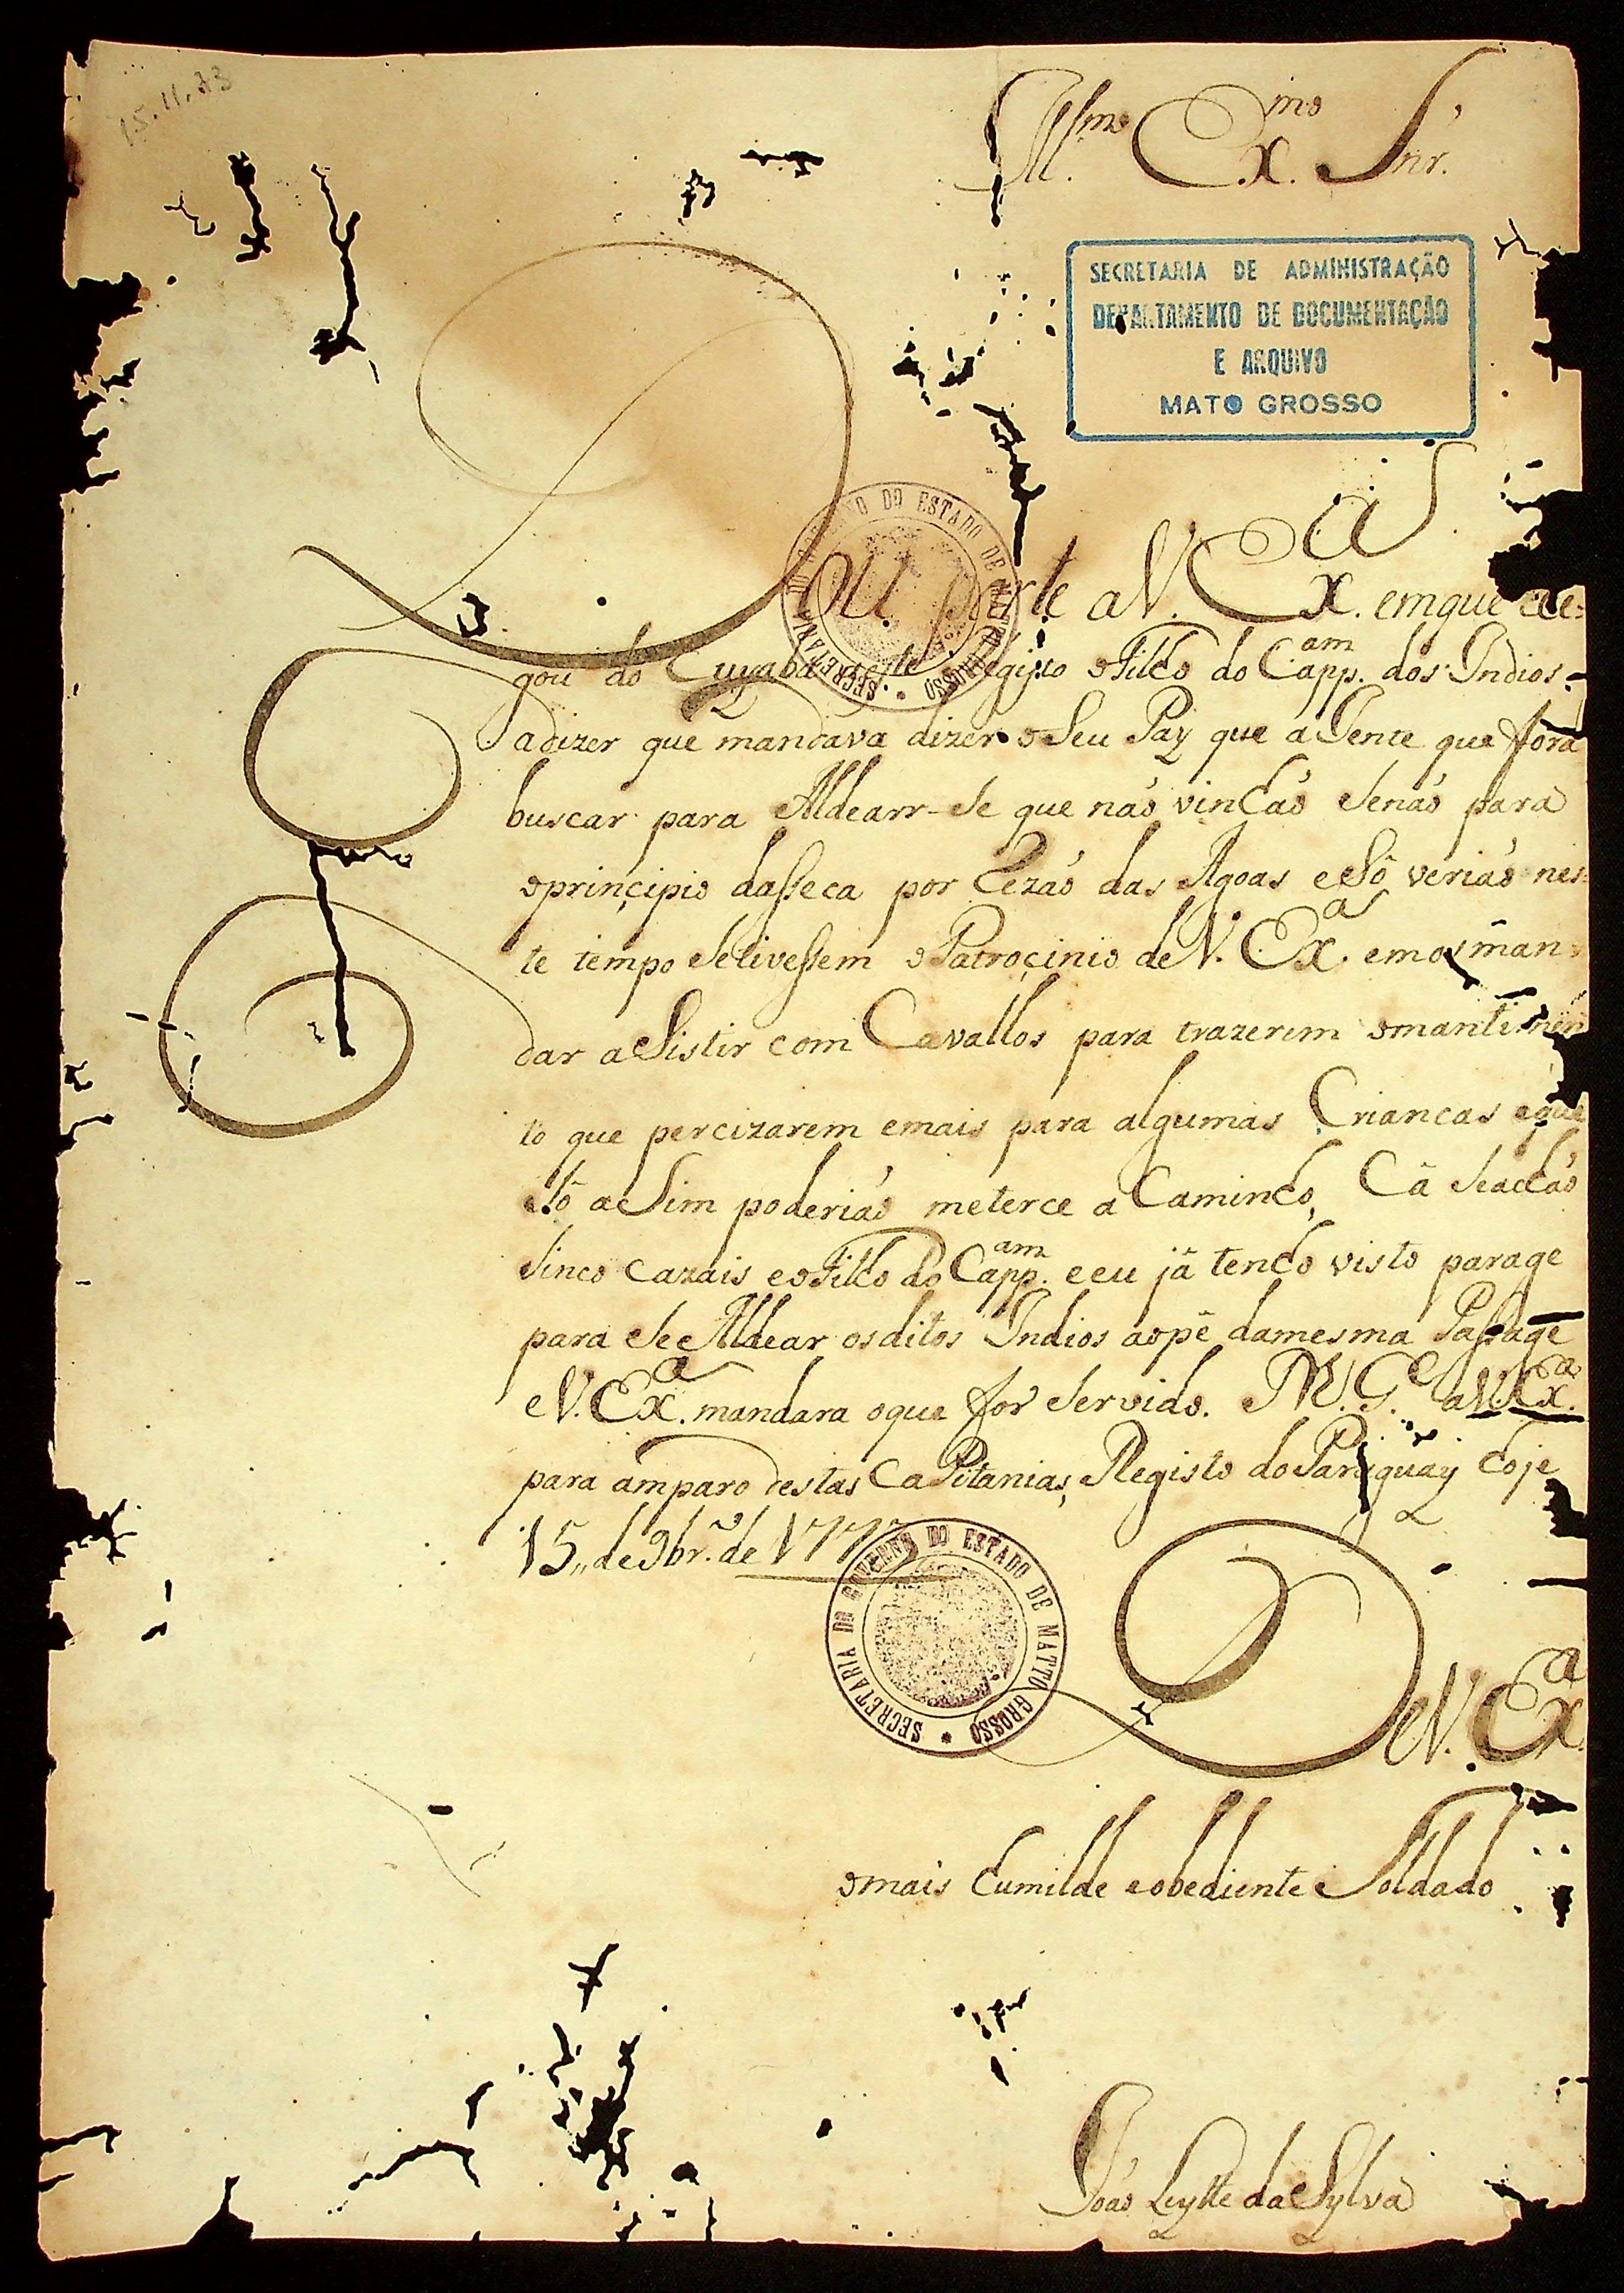 15.11.73
Ill.mo Ex.mo Snr.
SECRETARIA DE ADMINISTRAÇÃO
DEPARTAMENTO DE DOCUMENTAÇÃO
E ARQUIVO
MATO GROSSO
Dou parte a V. Ex.a em que che=
gou do Cuyabá este Registo o Filho do Capp.am dos Indios
a dizer que mandava dizer o Seu Pay que a Gente que fora
buscar para Aldearr-Se que naõ vinhaõ Senaõ para
o principio da sseca por rezaõ das Agoas e Só veriaõ nes=
te tempo Se tivessem o Patrocinio de V. Ex.a em os man=
dar aSistir com Cavallos para trazerem o mantimen
to que percizarem e mais para algumas Criancas e que
Só aSim poderiaõ meterce a Caminho, Cá Se achaõ
Sinco Cazais e o Filho do Capp.am e eu já tenho visto parage
para Se Aldear os ditos Indios ao pé da mesma Passage
e V. Ex.a mandara o que for Servido. N. S. G.e a V. Ex.a
para amparo destas CaPitanias, Registo do Paraguay hoje
15,, de 9br.º de 1773
SECRETARIA DO GOVERNO DO ESTADO DE MATTO GROSSO
De V. Ex.a
o mais humilde e obediente Soldado
Joaõ Leytte da Sylva
SECRETARIA DO GOVERNO DO ESTADO DE MATTO GROSSO